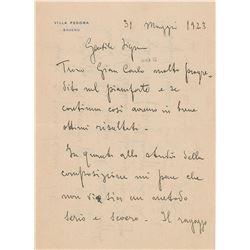 VILLA FEDORA
BAVENO
31 Maggio 1923
Gentile Signora
Trovo Gian Carlo molto progre-
dito sul pianforte e se
continua così avremo in breve
ottimi risultati.
In quanto allo studio della
composizione mi pare che
non vi sia un metodo
serio e severo. Il ragazzo